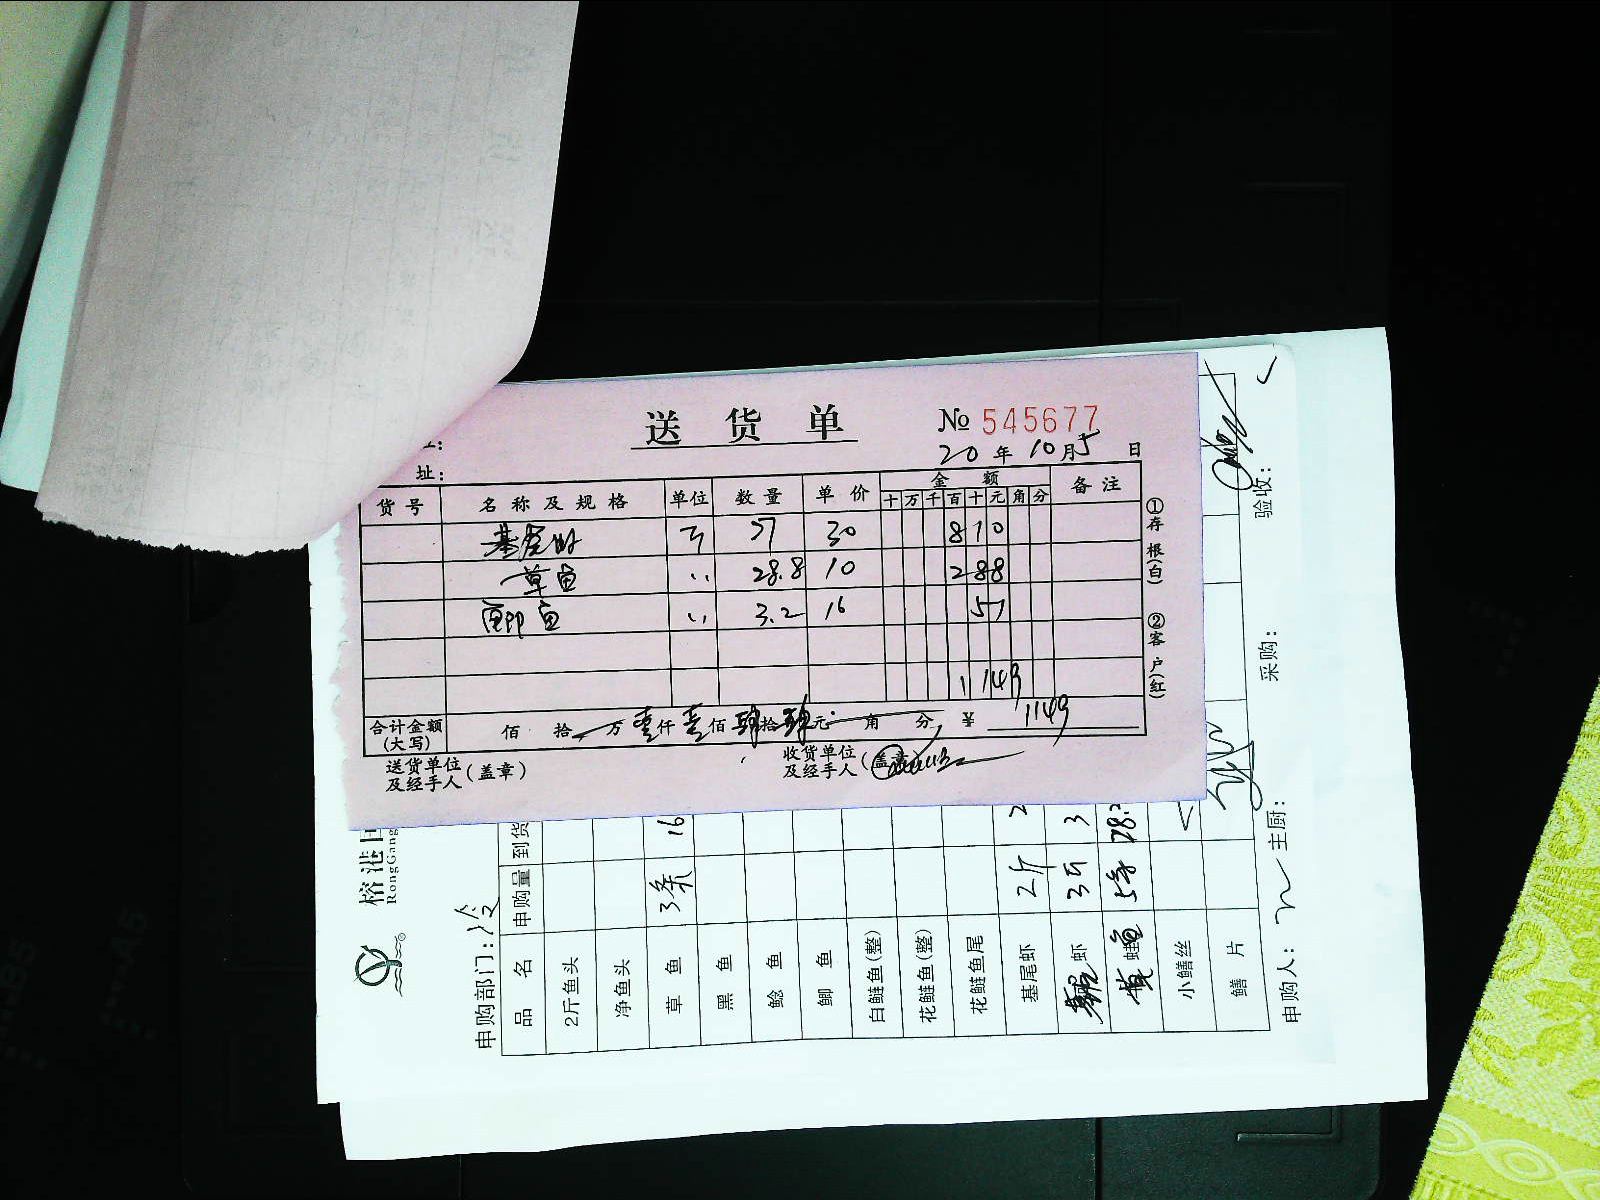 送货单 № 545677
20年10月5日
址：
货号 名称及规格 单位 数量 单价 金额 备注
十 万 千 百 十 元 角 分
基尾虾 斤 27 30 810
草鱼 〃 28.8 10 288
鲫鱼 〃 3.2 16 51
1149
合计金额(大写) 佰 拾 万壹仟壹佰肆拾 元 角 分 ¥ 1149
送货单位及经手人(盖章)
收货单位及经手人(盖章)
①存根(白) ②客户(红)
榕港
RongGang
申购部门：冷
品名 申购量 到货
2斤鱼头
净鱼头
草鱼 3条 16
黑鱼
鲶鱼
鲫鱼
白鲢鱼(整)
花鲢鱼(整)
花鲢鱼尾
基尾虾 2斤 2
虾 3斤 3
草鱼 28.
小鳝丝
鳝片
申购人： 主厨： 采购： 验收：